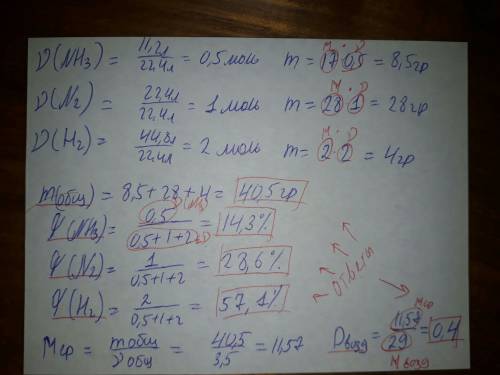 ν(NH₃) = 11,2л/22,4л = 0,5 моль m = 17 · 0,5 = 8,5гр
M ν
ν(N₂) = 22,4л/22,4л = 1 моль m = 28 · 1 = 28гр
M ν
ν(H₂) = 44,8л/22,4л = 2 моль m = 2 · 2 = 4гр
m(общ) = 8,5 + 28 + 4 = 40,5гр
φ(NH₃) = 0,5/(0,5+1+2) = 14,3%
φ(N₂) = 1/(0,5+1+2) = 28,6%
φ(H₂) = 2/(0,5+1+2) = 57,1%
ответы
Mср = mобщ/νобщ = 40,5/3,5 = 11,57
Dвозд = 11,57/29 = 0,4
Mср
Mвозд